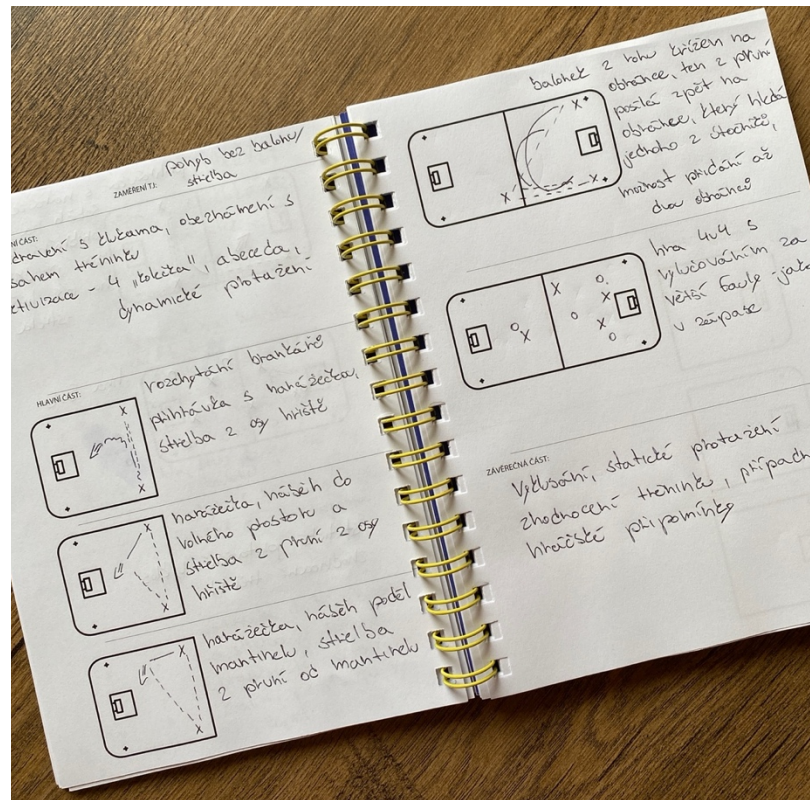 ZAMĚŘENÍ TJ: pohyb bez balonu/
střelba
NÍ ČÁST:
dravení s klukama, obeznámení s
sahem tréninku
ktivizace - 4 "kolečka", abeceda,
dynamické protažení
HLAVNÍ ČÁST:
rozchytání brankářů
přihrávka s narážečka,
střelba z osy hřiště
narážečka, náběh do
volného prostoru a
střelba z první z osy
hřiště
narážečka, náběh podél
mantinelu, střelba
z první od mantinelu
balonek z rohu křížem na
obránce, ten z první
posílá zpět na
obránce, který hledá
jednoho z útočníků,
možnost přidání až
dvou obránců
hra 4v4 s
vylučováním za
větší fauly - jako
v zápase
ZÁVĚREČNÁ ČÁST:
Vyklusání, statické protažení
zhodnocení tréninku, případn
hráčské připomínky